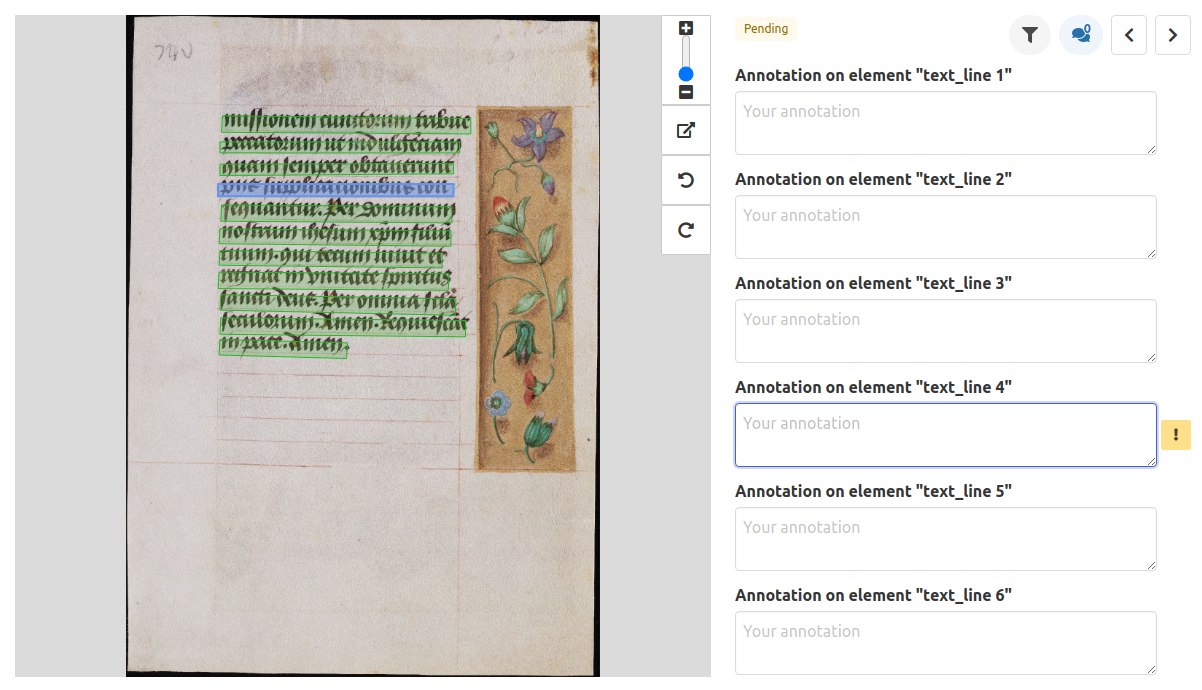 missionem cunctorum tribue
peccatorum ut indulgentiam
quam semper obtauerunt
piis supplicationibus con
sequantur. Per dominum
nostrum ihesum xpm filiū
tuum. qui tecum viuit et
regnat in vnitate spiritus
sancti deus. Per omnia sclā
seculorum. Amen. Requiescāt
in pace. Amen.
Pending
0
Annotation on element "text_line 1"
Your annotation
Annotation on element "text_line 2"
Your annotation
Annotation on element "text_line 3"
Your annotation
Annotation on element "text_line 4"
Your annotation
!
Annotation on element "text_line 5"
Your annotation
Annotation on element "text_line 6"
Your annotation